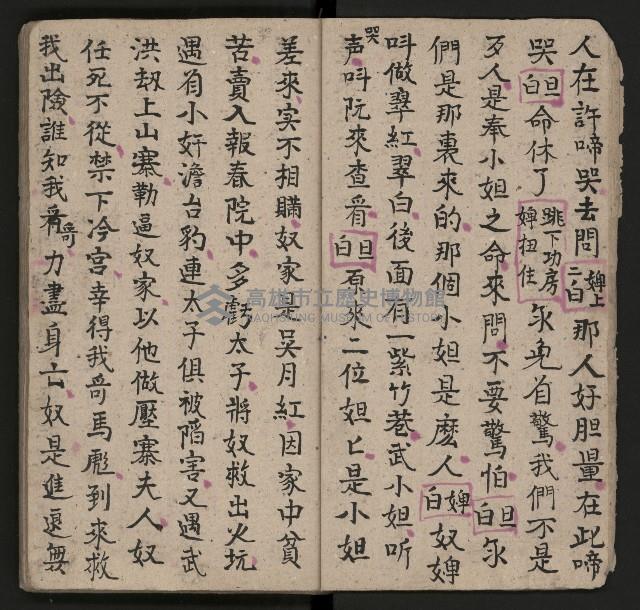 人在許啼哭去問婢上二白那人好胆量在此啼
哭旦白命休了跳下功房婢扭住尔免自驚我們不是
歹人是奉小姐之命來問不要驚怕旦白尔
們是那裏來的那個小姐是庅人婢白奴婢
叫做翠紅翠白後面有一紫竹巷武小姐听
哭声叫阮來查看旦白原來二位姐匕是小姐
差來实不相瞞奴家是吴月紅因家中貧
苦賣入報春院中多虧太子將奴救出火坑
遇有小奸澹台豹連太子俱被陷害又遇武
洪刼上山寨勒逼奴家以他做壓寨夫人奴
任死不從禁下冷宮幸得我哥馬彪到來救
我出險誰知我哥力盡身亡奴是進退無
高雄市立歷史博物館
KAOHSIUNG MUSEUM OF HISTORY